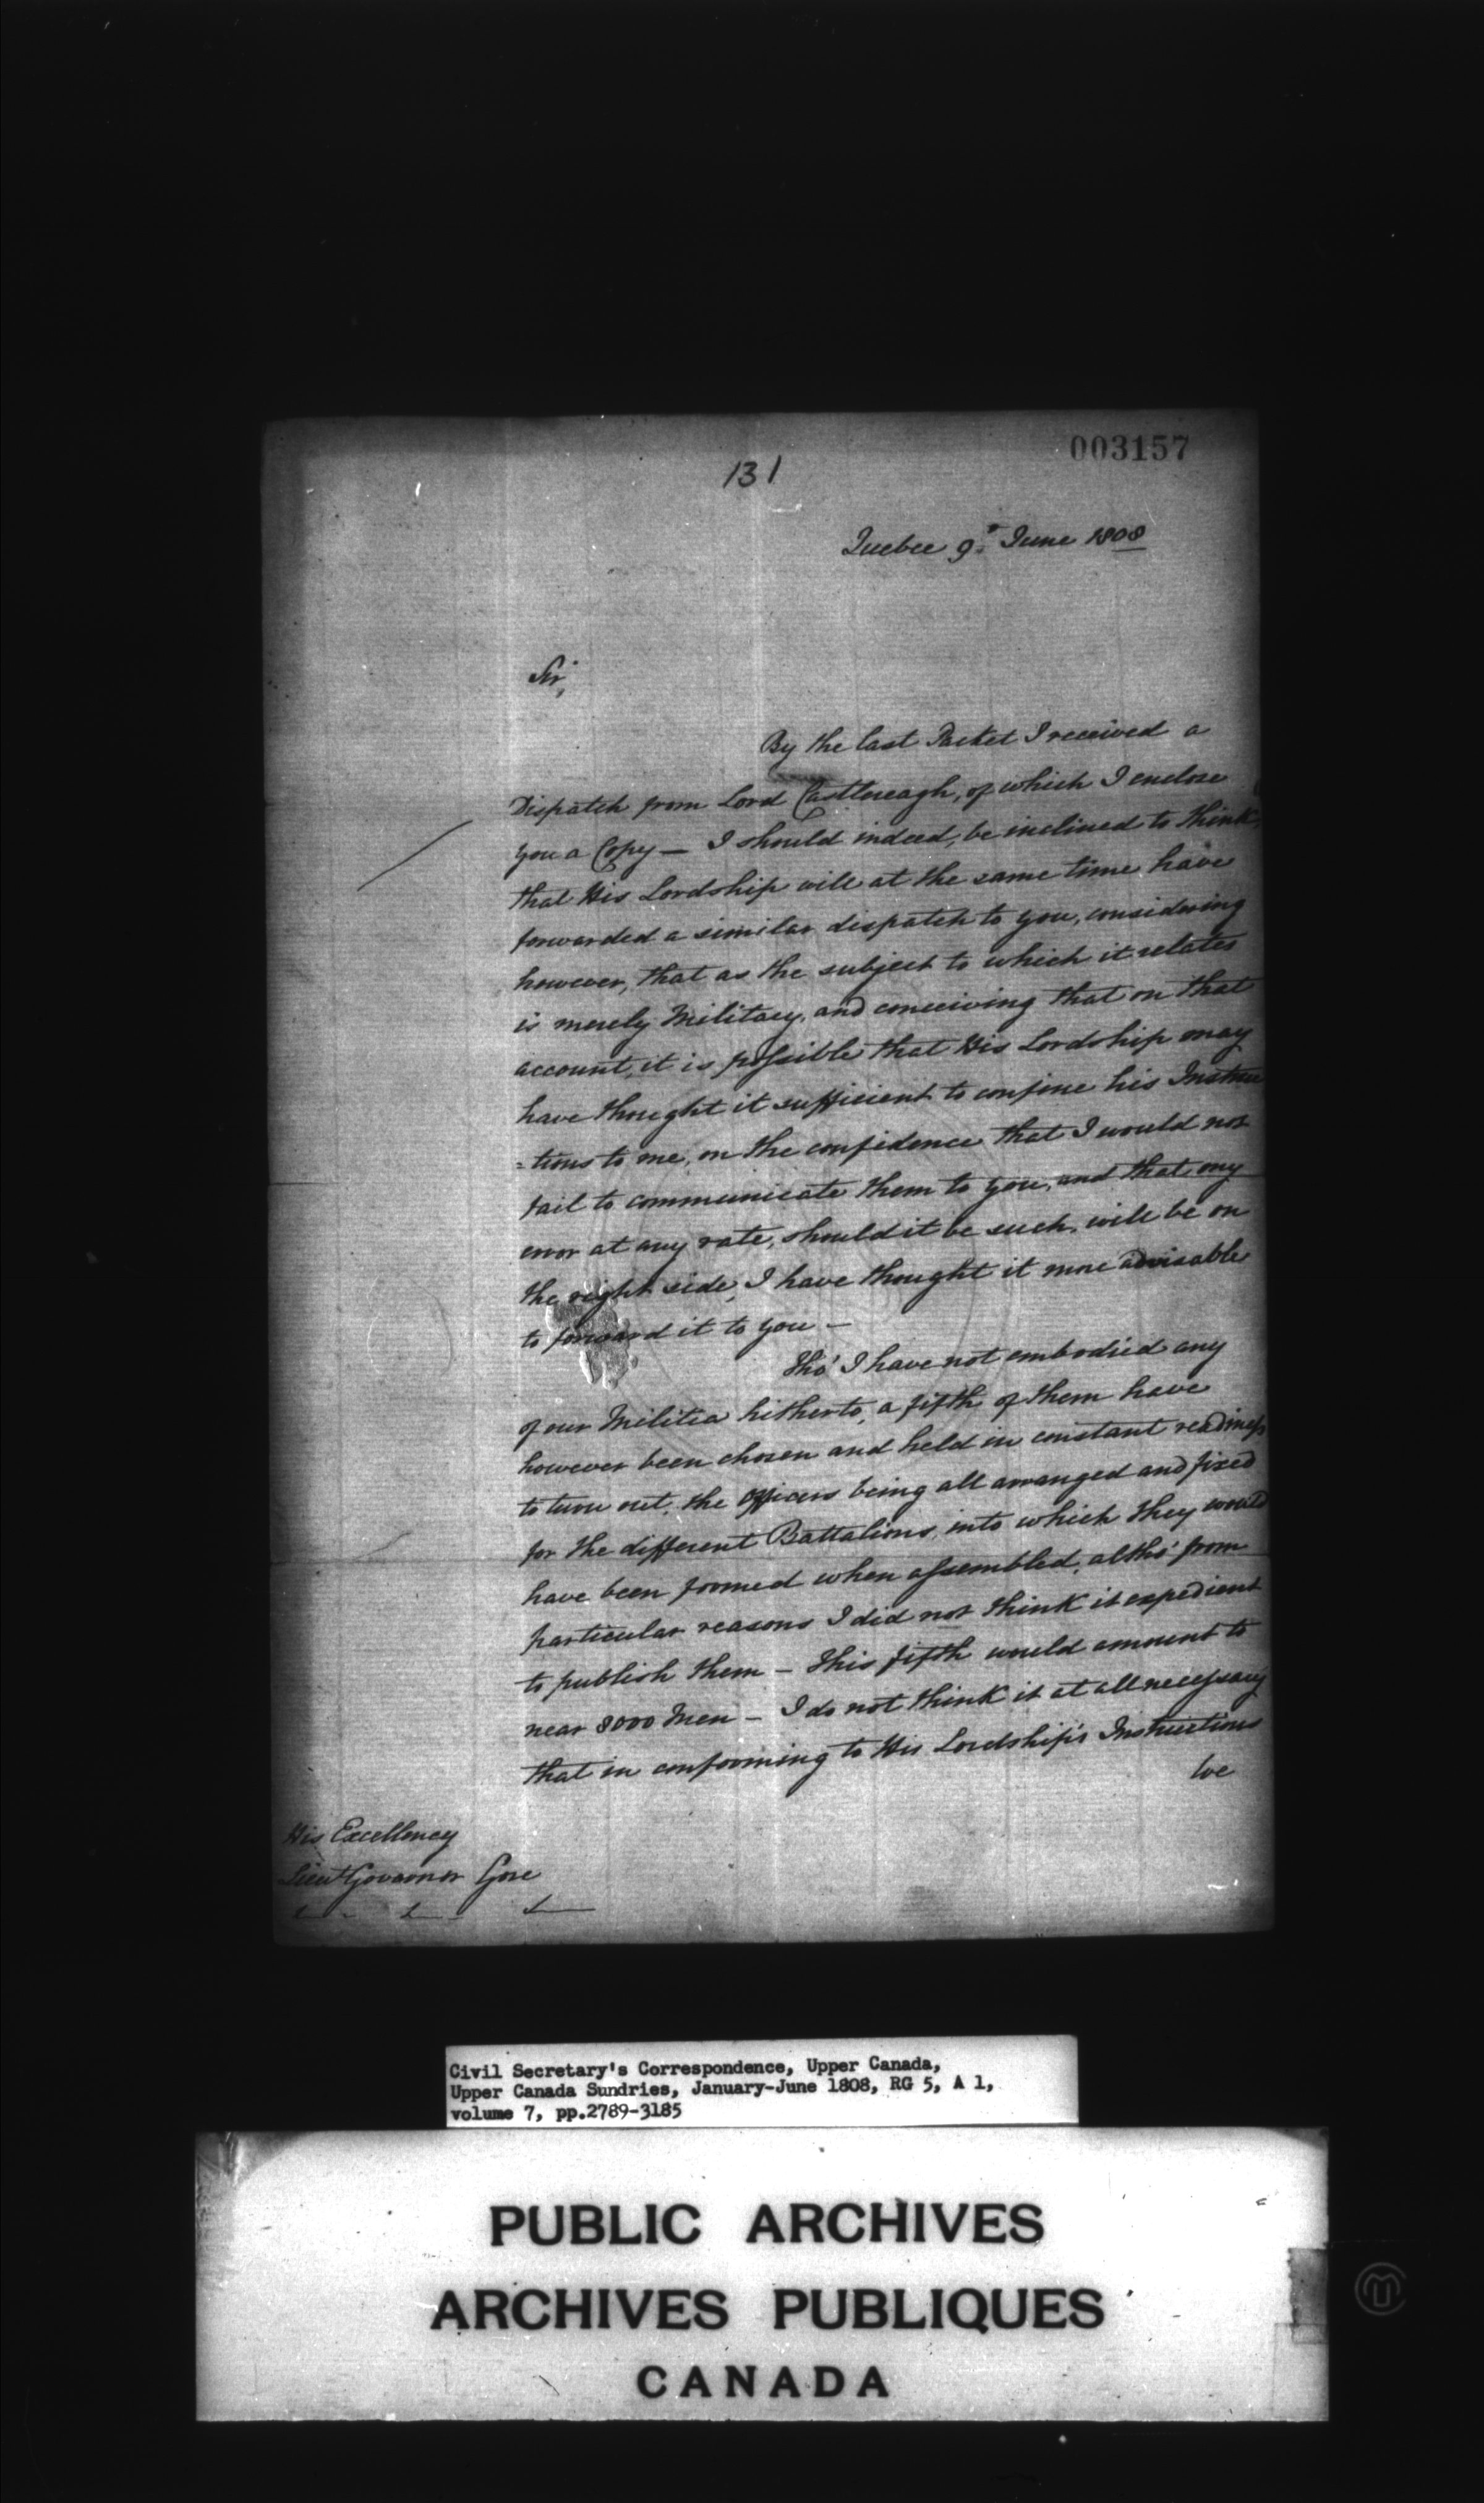 003157
131
Quebec 9th June 1808
Sir,
By the last Packet I received a
Dispatch from Lord Castlereagh, of which I enclose
you a Copy — I should indeed, be inclined to think,
that His Lordship will at the same time have
forwarded a similar dispatch to you, considering
however, that as the subject to which it relates
is merely Military, and conceiving that on that
account, it is possible that His Lordship may
have thought it sufficient to confine his Instruc
=tions to me, on the confidence that I would not
fail to communicate them to you, and that my
error at any rate, should it be such, will be on
the right side, I have thought it more advisable
to forward it to you —
Tho' I have not embodied any
of our Militia hitherto, a fifth of them have
however been chosen and held in constant readiness
to turn out, the Officers being all arranged and fixed
for the different Battalions, into which they would
have been formed when assembled, altho' from
particular reasons I did not think it expedient
to publish them — This fifth would amount to
near 8000 Men — I do not think it at all necessary
that in conforming to His Lordship's Instructions
We
His Excellency
Lieut Governor Gore
&c &c &c
Civil Secretary's Correspondence, Upper Canada,
Upper Canada Sundries, January-June 1808, RG 5, A 1,
volume 7, pp.2789-3185
PUBLIC ARCHIVES
ARCHIVES PUBLIQUES
CANADA